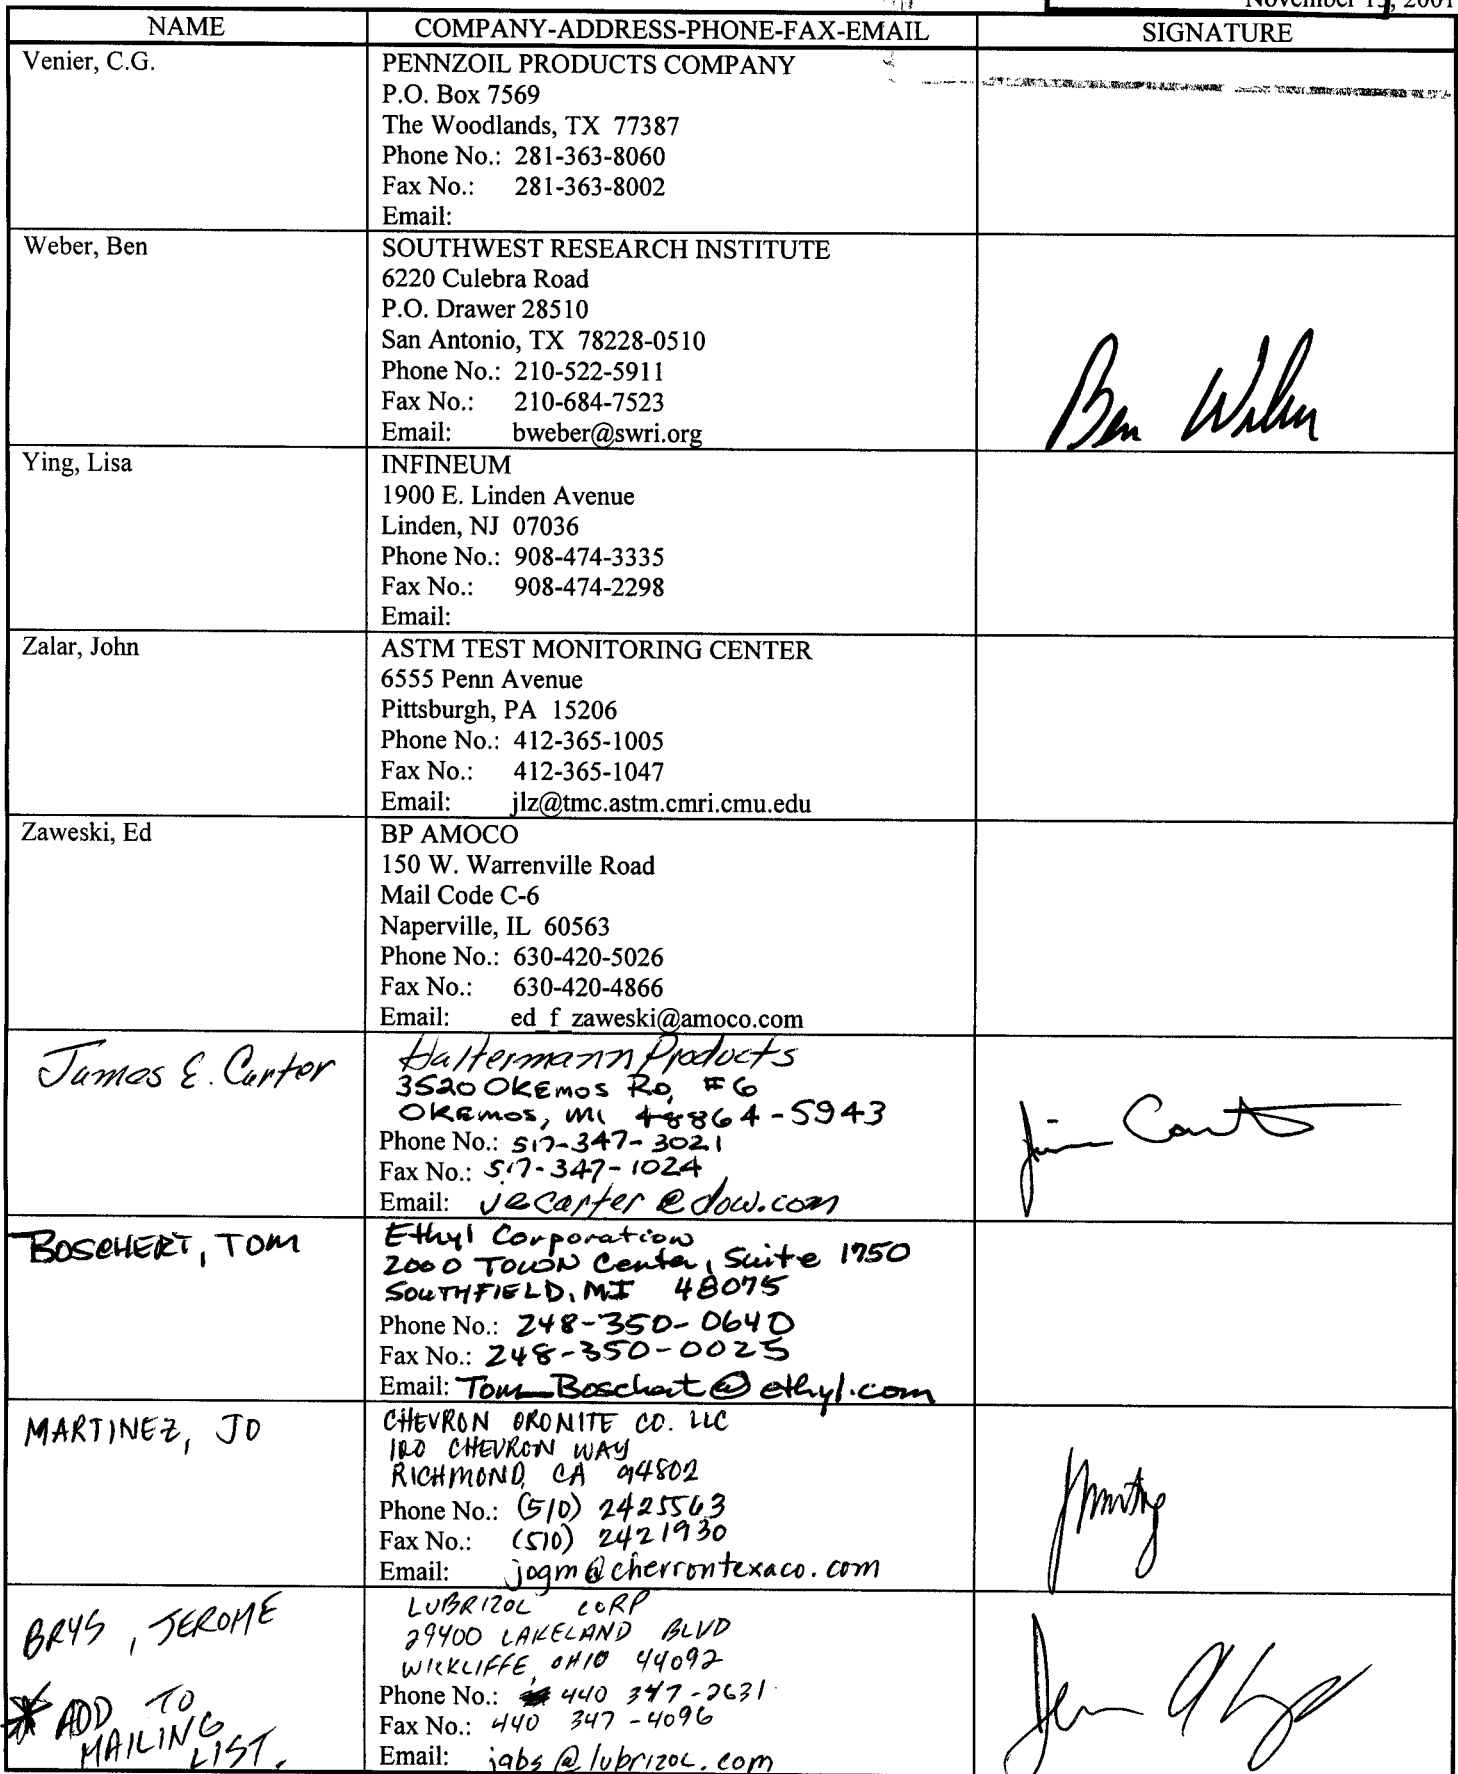 November 13, 2001
NAME COMPANY-ADDRESS-PHONE-FAX-EMAIL SIGNATURE
Venier, C.G.
PENNZOIL PRODUCTS COMPANY
P.O. Box 7569
The Woodlands, TX 77387
Phone No.: 281-363-8060
Fax No.: 281-363-8002
Email:
Weber, Ben
SOUTHWEST RESEARCH INSTITUTE
6220 Culebra Road
P.O. Drawer 28510
San Antonio, TX 78228-0510
Phone No.: 210-522-5911
Fax No.: 210-684-7523
Email: bweber@swri.org
Ben Weber
Ying, Lisa
INFINEUM
1900 E. Linden Avenue
Linden, NJ 07036
Phone No.: 908-474-3335
Fax No.: 908-474-2298
Email:
Zalar, John
ASTM TEST MONITORING CENTER
6555 Penn Avenue
Pittsburgh, PA 15206
Phone No.: 412-365-1005
Fax No.: 412-365-1047
Email: jlz@tmc.astm.cmri.cmu.edu
Zaweski, Ed
BP AMOCO
150 W. Warrenville Road
Mail Code C-6
Naperville, IL 60563
Phone No.: 630-420-5026
Fax No.: 630-420-4866
Email: ed_f_zaweski@amoco.com
James E. Carter
Haltermann Products
3520 OKEMOS RD, #6
OKEMOS, MI 48864-5943
Phone No.: 517-347-3021
Fax No.: 517-347-1024
Email: jecarter@dow.com
Jim Carter
BOSCHERT, TOM
Ethyl Corporation
2000 TOWN Center, Suite 1750
SOUTHFIELD, MI 48075
Phone No.: 248-350-0640
Fax No.: 248-350-0025
Email: Tom_Boschert@ethyl.com
MARTINEZ, JO
CHEVRON ORONITE CO. LLC
100 CHEVRON WAY
RICHMOND, CA 94802
Phone No.: (510) 2425563
Fax No.: (510) 2421930
Email: jogm@chevrontexaco.com
BRYS, JEROME
* ADD TO
MAILING
LIST.
LUBRIZOL CORP
29400 LAKELAND BLVD
WICKLIFFE, OHIO 44092
Phone No.: 440 347-2631
Fax No.: 440 347-4096
Email: jabs@lubrizol.com